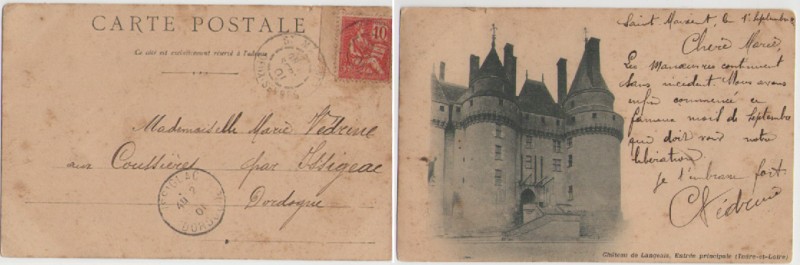 CARTE POSTALE
Ce côté est exclusivement réservé à l'adresse
10
Mademoiselle Marie Védrine
aux Coussières par Issigeac
Dordogne
ISSIGEAC
2
01
DORDOGNE
Saint Maixent, le 1 Septembre
Chère Marie,
Les Manœuvres continuent
sans incident. Nous avons
enfin commencé ce
fameux mois de Septembre
qui doit voir notre
libération.
Je t'embrasse fort.
Védrine
Château de Langeais, Entrée principale (Indre-et-Loire)